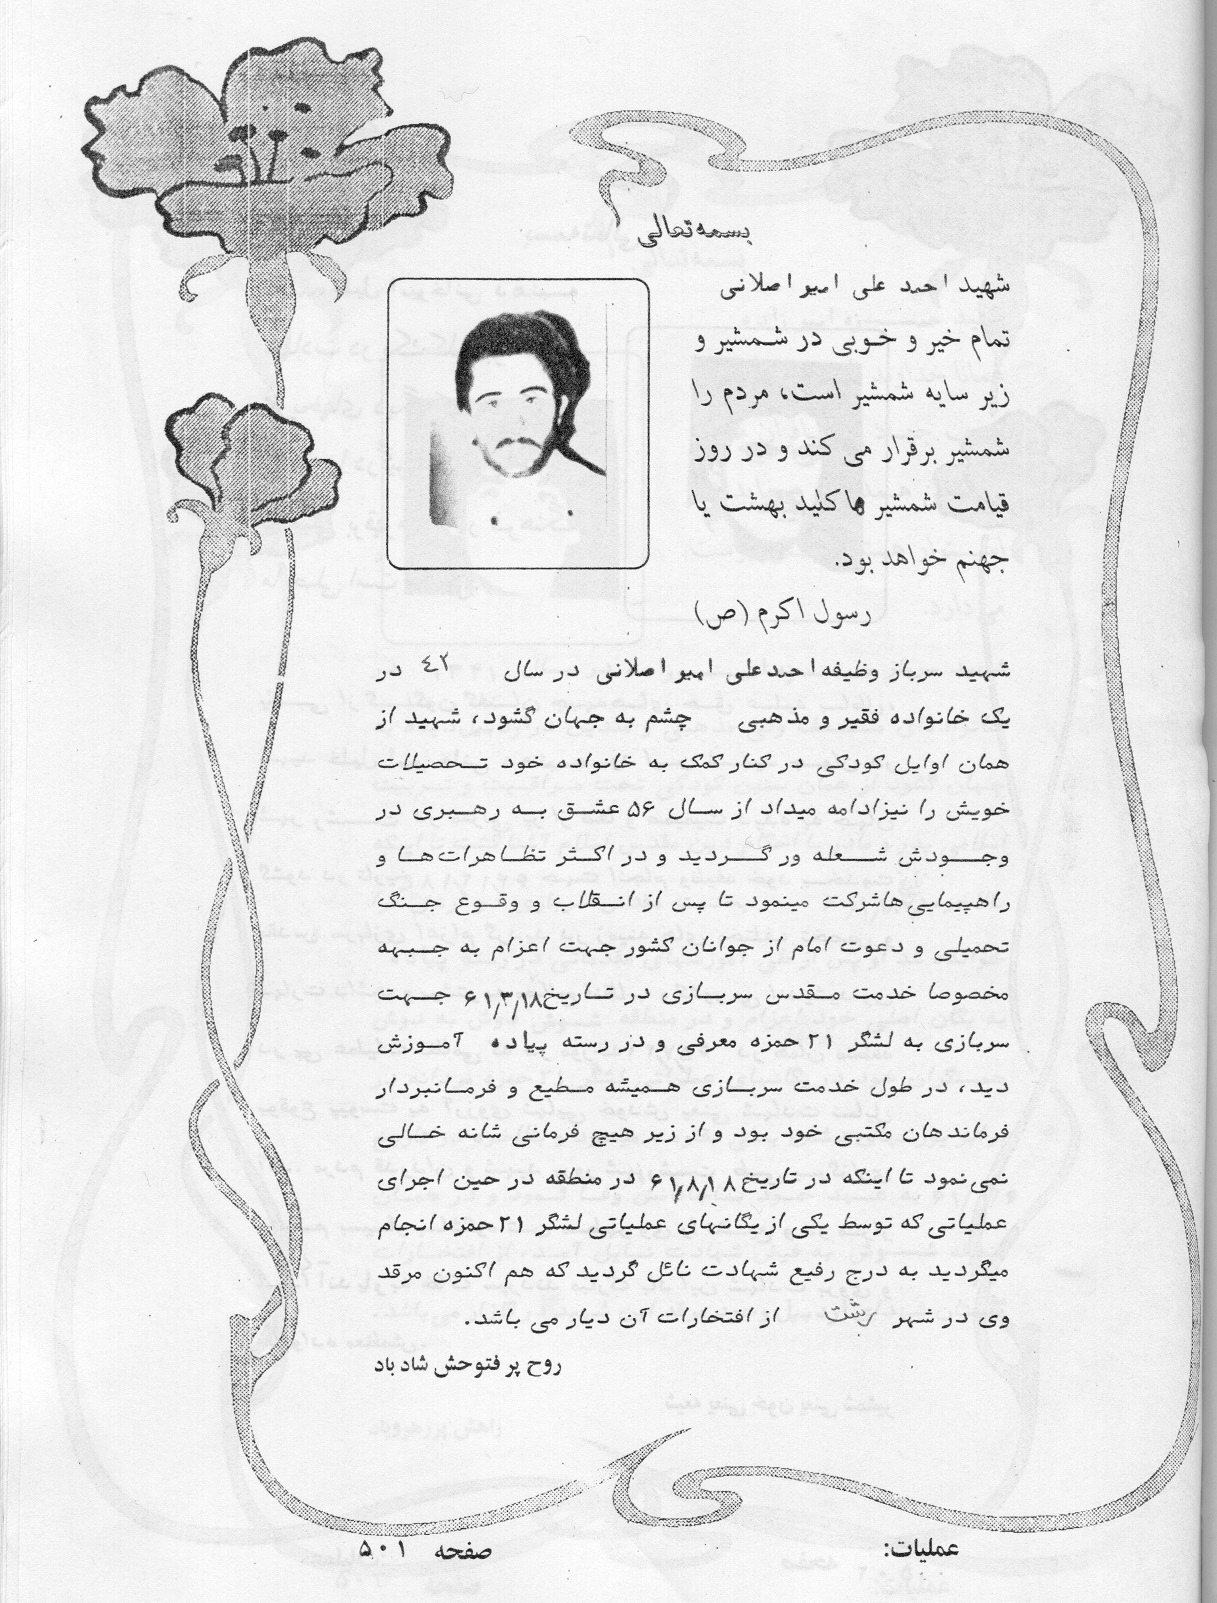 بسمه تعالی
شهید احمد علی امیر اصلانی
تمام خیر و خوبی در شمشیر و
زیر سایه شمشیر است، مردم را
شمشیر برقرار می کند و در روز
قیامت شمشیر ها کلید بهشت یا
جهنم خواهد بود.
رسول اکرم (ص)
شهید سرباز وظیفه احمد علی امیر اصلانی در سال ۴۲ در
یک خانواده فقیر و مذهبی چشم به جهان گشود، شهید از
همان اوایل کودکی در کنار کمک به خانواده خود تحصیلات
خویش را نیز ادامه میداد از سال ۵۶ عشق به رهبری در
وجودش شعله ور گردید و در اکثر تظاهرات ها و
راهپیمایی ها شرکت مینمود تا پس از انقلاب و وقوع جنگ
تحمیلی و دعوت امام از جوانان کشور جهت اعزام به جبهه
مخصوصا خدمت مقدس سربازی در تاریخ ۶۱/۳/۱۸ جهت
سربازی به لشگر ۲۱ حمزه معرفی و در رسته پیاده آموزش
دید، در طول خدمت سربازی همیشه مطیع و فرمانبردار
فرماندهان مکتبی خود بود و از زیر هیچ فرمانی شانه خالی
نمی نمود تا اینکه در تاریخ ۶۱/۸/۱۸ در منطقه در حین اجرای
عملیاتی که توسط یکی از یگانهای عملیاتی لشگر ۲۱ حمزه انجام
میگردید به درج رفیع شهادت نائل گردید که هم اکنون مرقد
وی در شهر رشت از افتخارات آن دیار می باشد.
روح پر فتوحش شاد باد
عملیات:
صفحه ۵۰۱